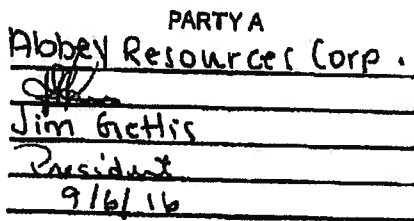 PARTY A
Abbey Resources Corp.
Jim Gettis
President
9/6/16